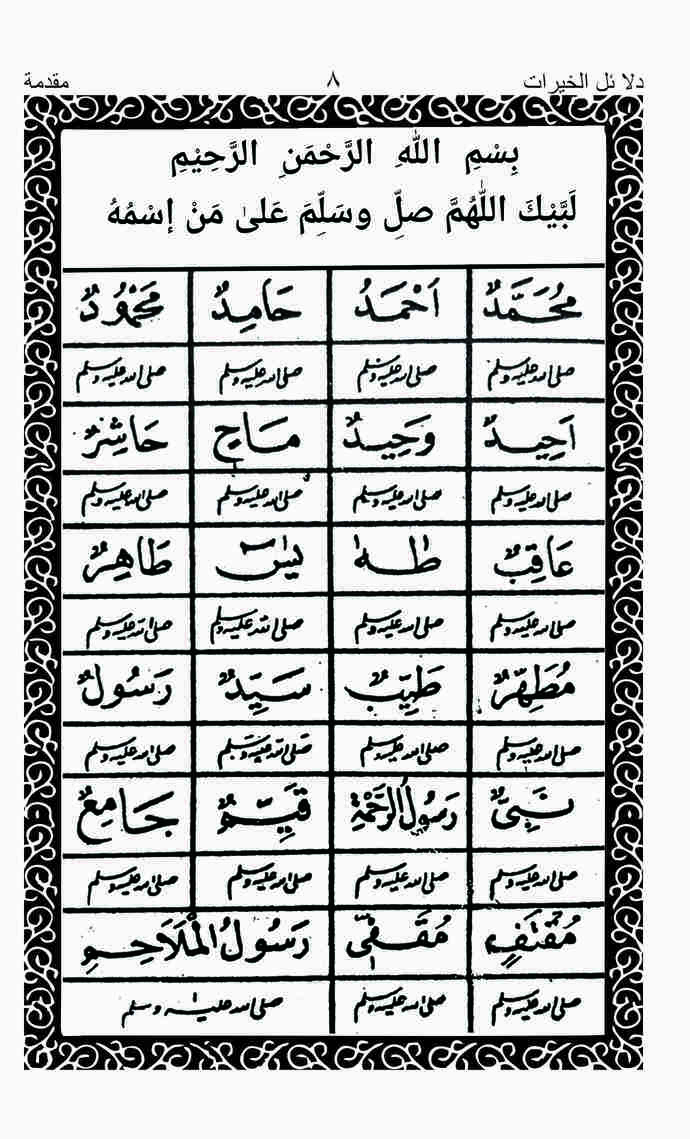 دلا ئل الخيرات ٨ مقدمة
بِسْمِ اللهِ الرَّحْمَنِ الرَّحِيْمِ
لَبَّيْكَ اللّٰهُمَّ صلِّ وسَلِّمَ عَلىٰ مَنْ إسْمُهُ
مُحَمَّدٌ اَحْمَدُ حَامِدٌ مَحْمُودٌ
صلى الله عليه وسلم صلى الله عليه وسلم صلى الله عليه وسلم صلى الله عليه وسلم
اَحِيدٌ وَحِيدٌ مَاحٍ حَاشِرٌ
صلى الله عليه وسلم صلى الله عليه وسلم صلى الله عليه وسلم صلى الله عليه وسلم
عَاقِبٌ طٰهٰ يٰسٓ طَاهِرٌ
صلى الله عليه وسلم صلى الله عليه وسلم صلى الله عليه وسلم صلى الله عليه وسلم
مُطَهِّرٌ طَيِّبٌ سَيِّدٌ رَسُولٌ
صلى الله عليه وسلم صلى الله عليه وسلم صلى الله عليه وسلم صلى الله عليه وسلم
نَبِىٌّ رَسُولُ الرَّحْمَةِ قَيِّمٌ جَامِعٌ
صلى الله عليه وسلم صلى الله عليه وسلم صلى الله عليه وسلم صلى الله عليه وسلم
مُقْتَفٍ مُقَفّٰى رَسُولُ الْمَلَاحِمِ
صلى الله عليه وسلم صلى الله عليه وسلم صلى الله عليه وسلم